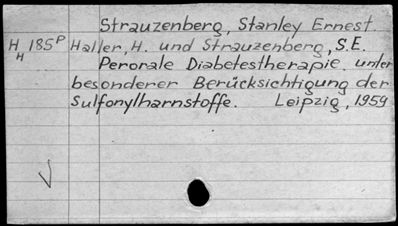 Strauzenberg, Stanley Ernest.
H H 185P Haller, H. und Strauzenberg, S.E.
Perorale Diabetestherapie unter
besonderer Berücksichtigung der
Sulfonylharnstoffe. Leipzig, 1959